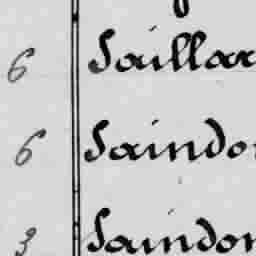 6 Saillar
6 Saindo
3 Saindon